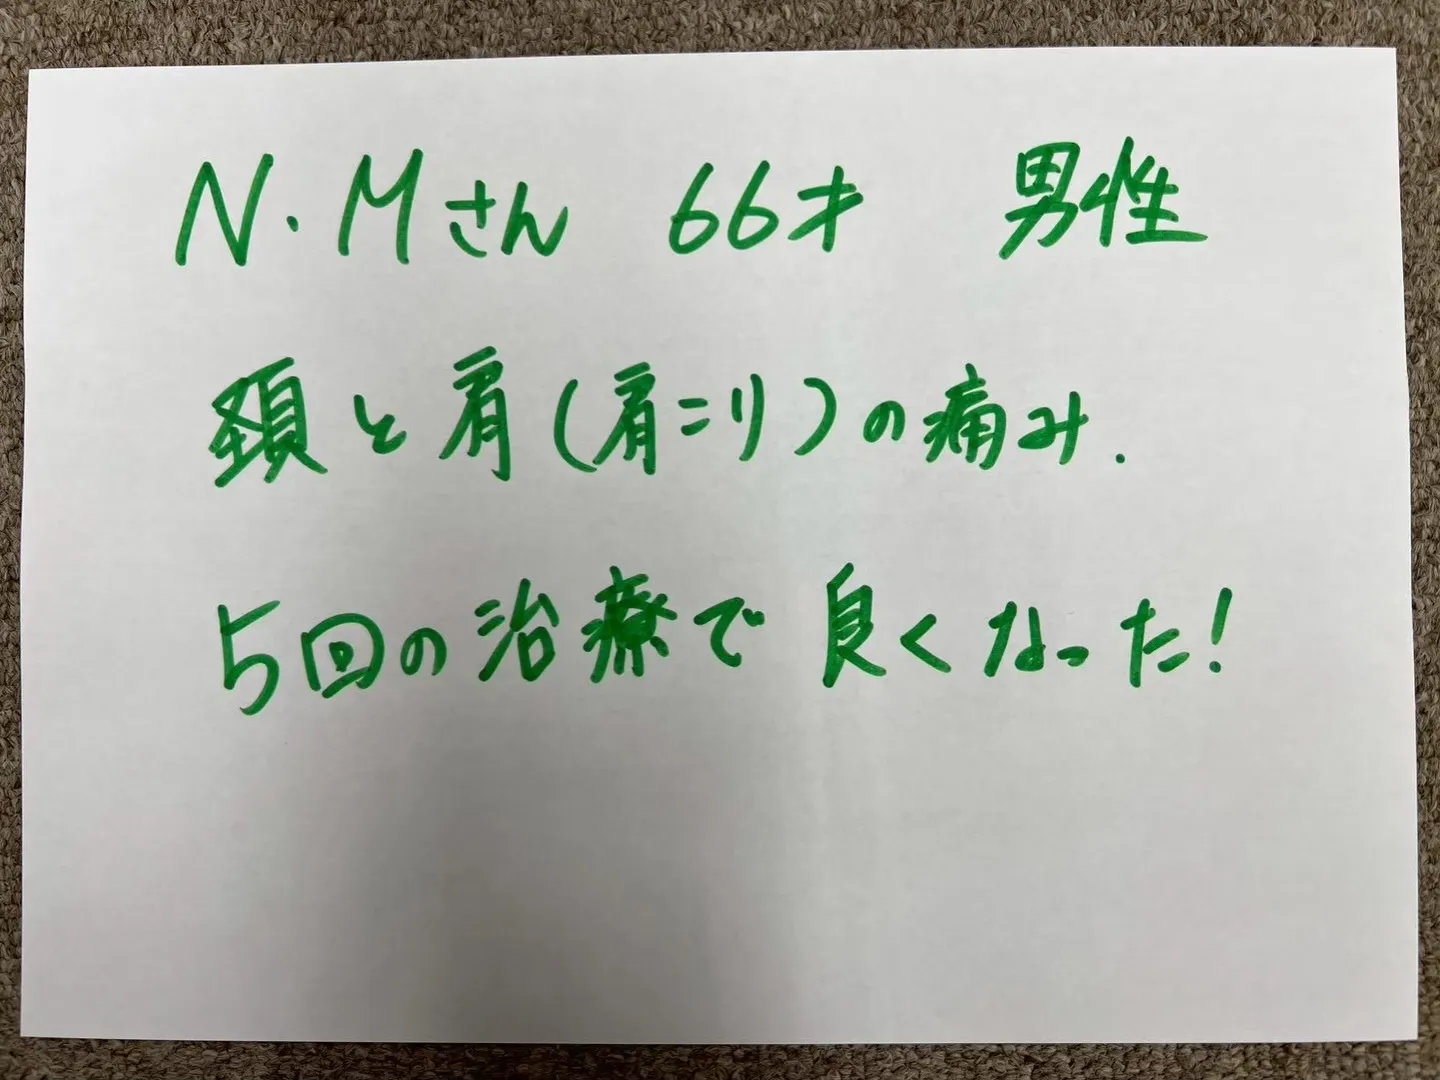 N.Mさん 66才 男性
頚と肩(肩こり)の痛み.
5回の治療で良くなった!